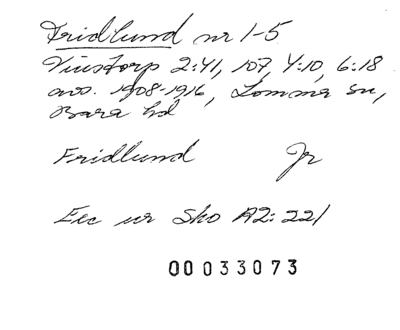 Fridlund nr 1-5
Vinstorp 2:41, 107, 4:10, 6:18
avs. 1908-1916, Lomma sn,
Bara hd
Fridlund Jr
Exc ur Sko A2:221
00033073